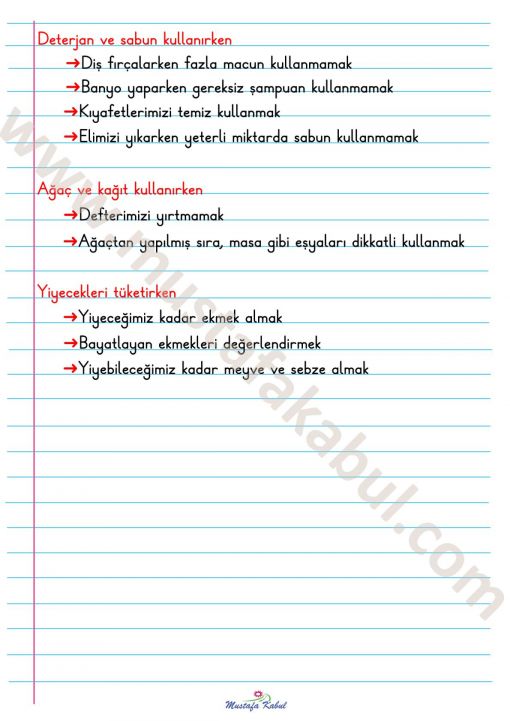 Deterjan ve sabun kullanırken
➔Diş fırçalarken fazla macun kullanmamak
➔Banyo yaparken gereksiz şampuan kullanmamak
➔Kıyafetlerimizi temiz kullanmak
➔Elimizi yıkarken yeterli miktarda sabun kullanmamak
Ağaç ve kağıt kullanırken
➔Defterimizi yırtmamak
➔Ağaçtan yapılmış sıra, masa gibi eşyaları dikkatli kullanmak
Yiyecekleri tüketirken
➔Yiyeceğimiz kadar ekmek almak
➔Bayatlayan ekmekleri değerlendirmek
➔Yiyebileceğimiz kadar meyve ve sebze almak
www.mustafakabul.com
Mustafa Kabul